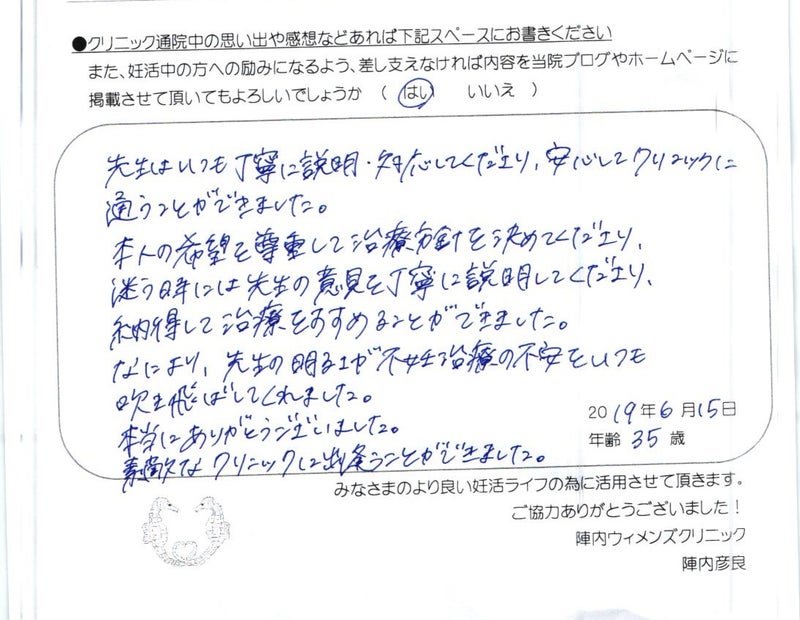 ●クリニック通院中の思い出や感想などあれば下記スペースにお書きください
また、妊活中の方への励みになるよう、差し支えなければ内容を当院ブログやホームページに
掲載させて頂いてもよろしいでしょうか （ はい いいえ ）
先生はいつも丁寧に説明・対応してくださり、安心してクリニックに
通うことができました。
本人の希望を尊重して治療方針を決めてくださり、
迷う時には先生の意見を丁寧に説明してくださり、
納得して治療をすすめることができました。
なにより、先生の明るさが不妊治療の不安をいつも
吹き飛ばしてくれました。
本当にありがとうございました。
素敵なクリニックに出逢うことができました。
2019年6月15日
年齢 35歳
みなさまのより良い妊活ライフの為に活用させて頂きます。
ご協力ありがとうございました！
陣内ウィメンズクリニック
陣内彦良